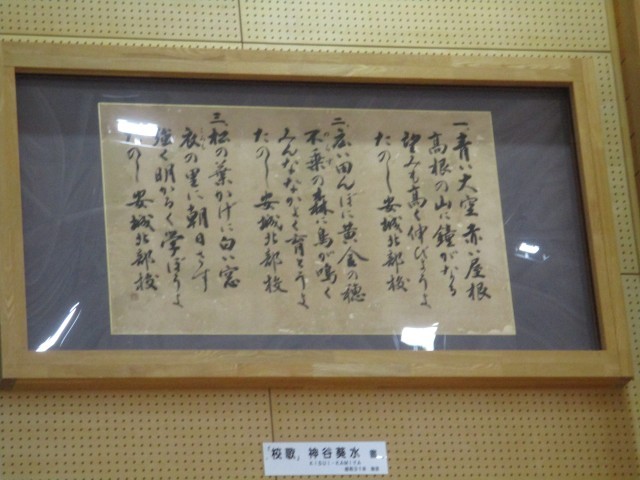 一、青い大空赤い屋根
高根の山に鐘がなる
望みも高く伸びようよ
たのし安城北部校
二、広い田んぼに黄金の穂
不乗の森に鳥が鳴く
みんななかよく育とうよ
たのし安城北部校
三、松の葉かげに白い窓
衣の里に朝日さす
強く明かるく学ぼうよ
たのし安城北部校
「校歌」神谷葵水 書
KISUI-KAMIYA